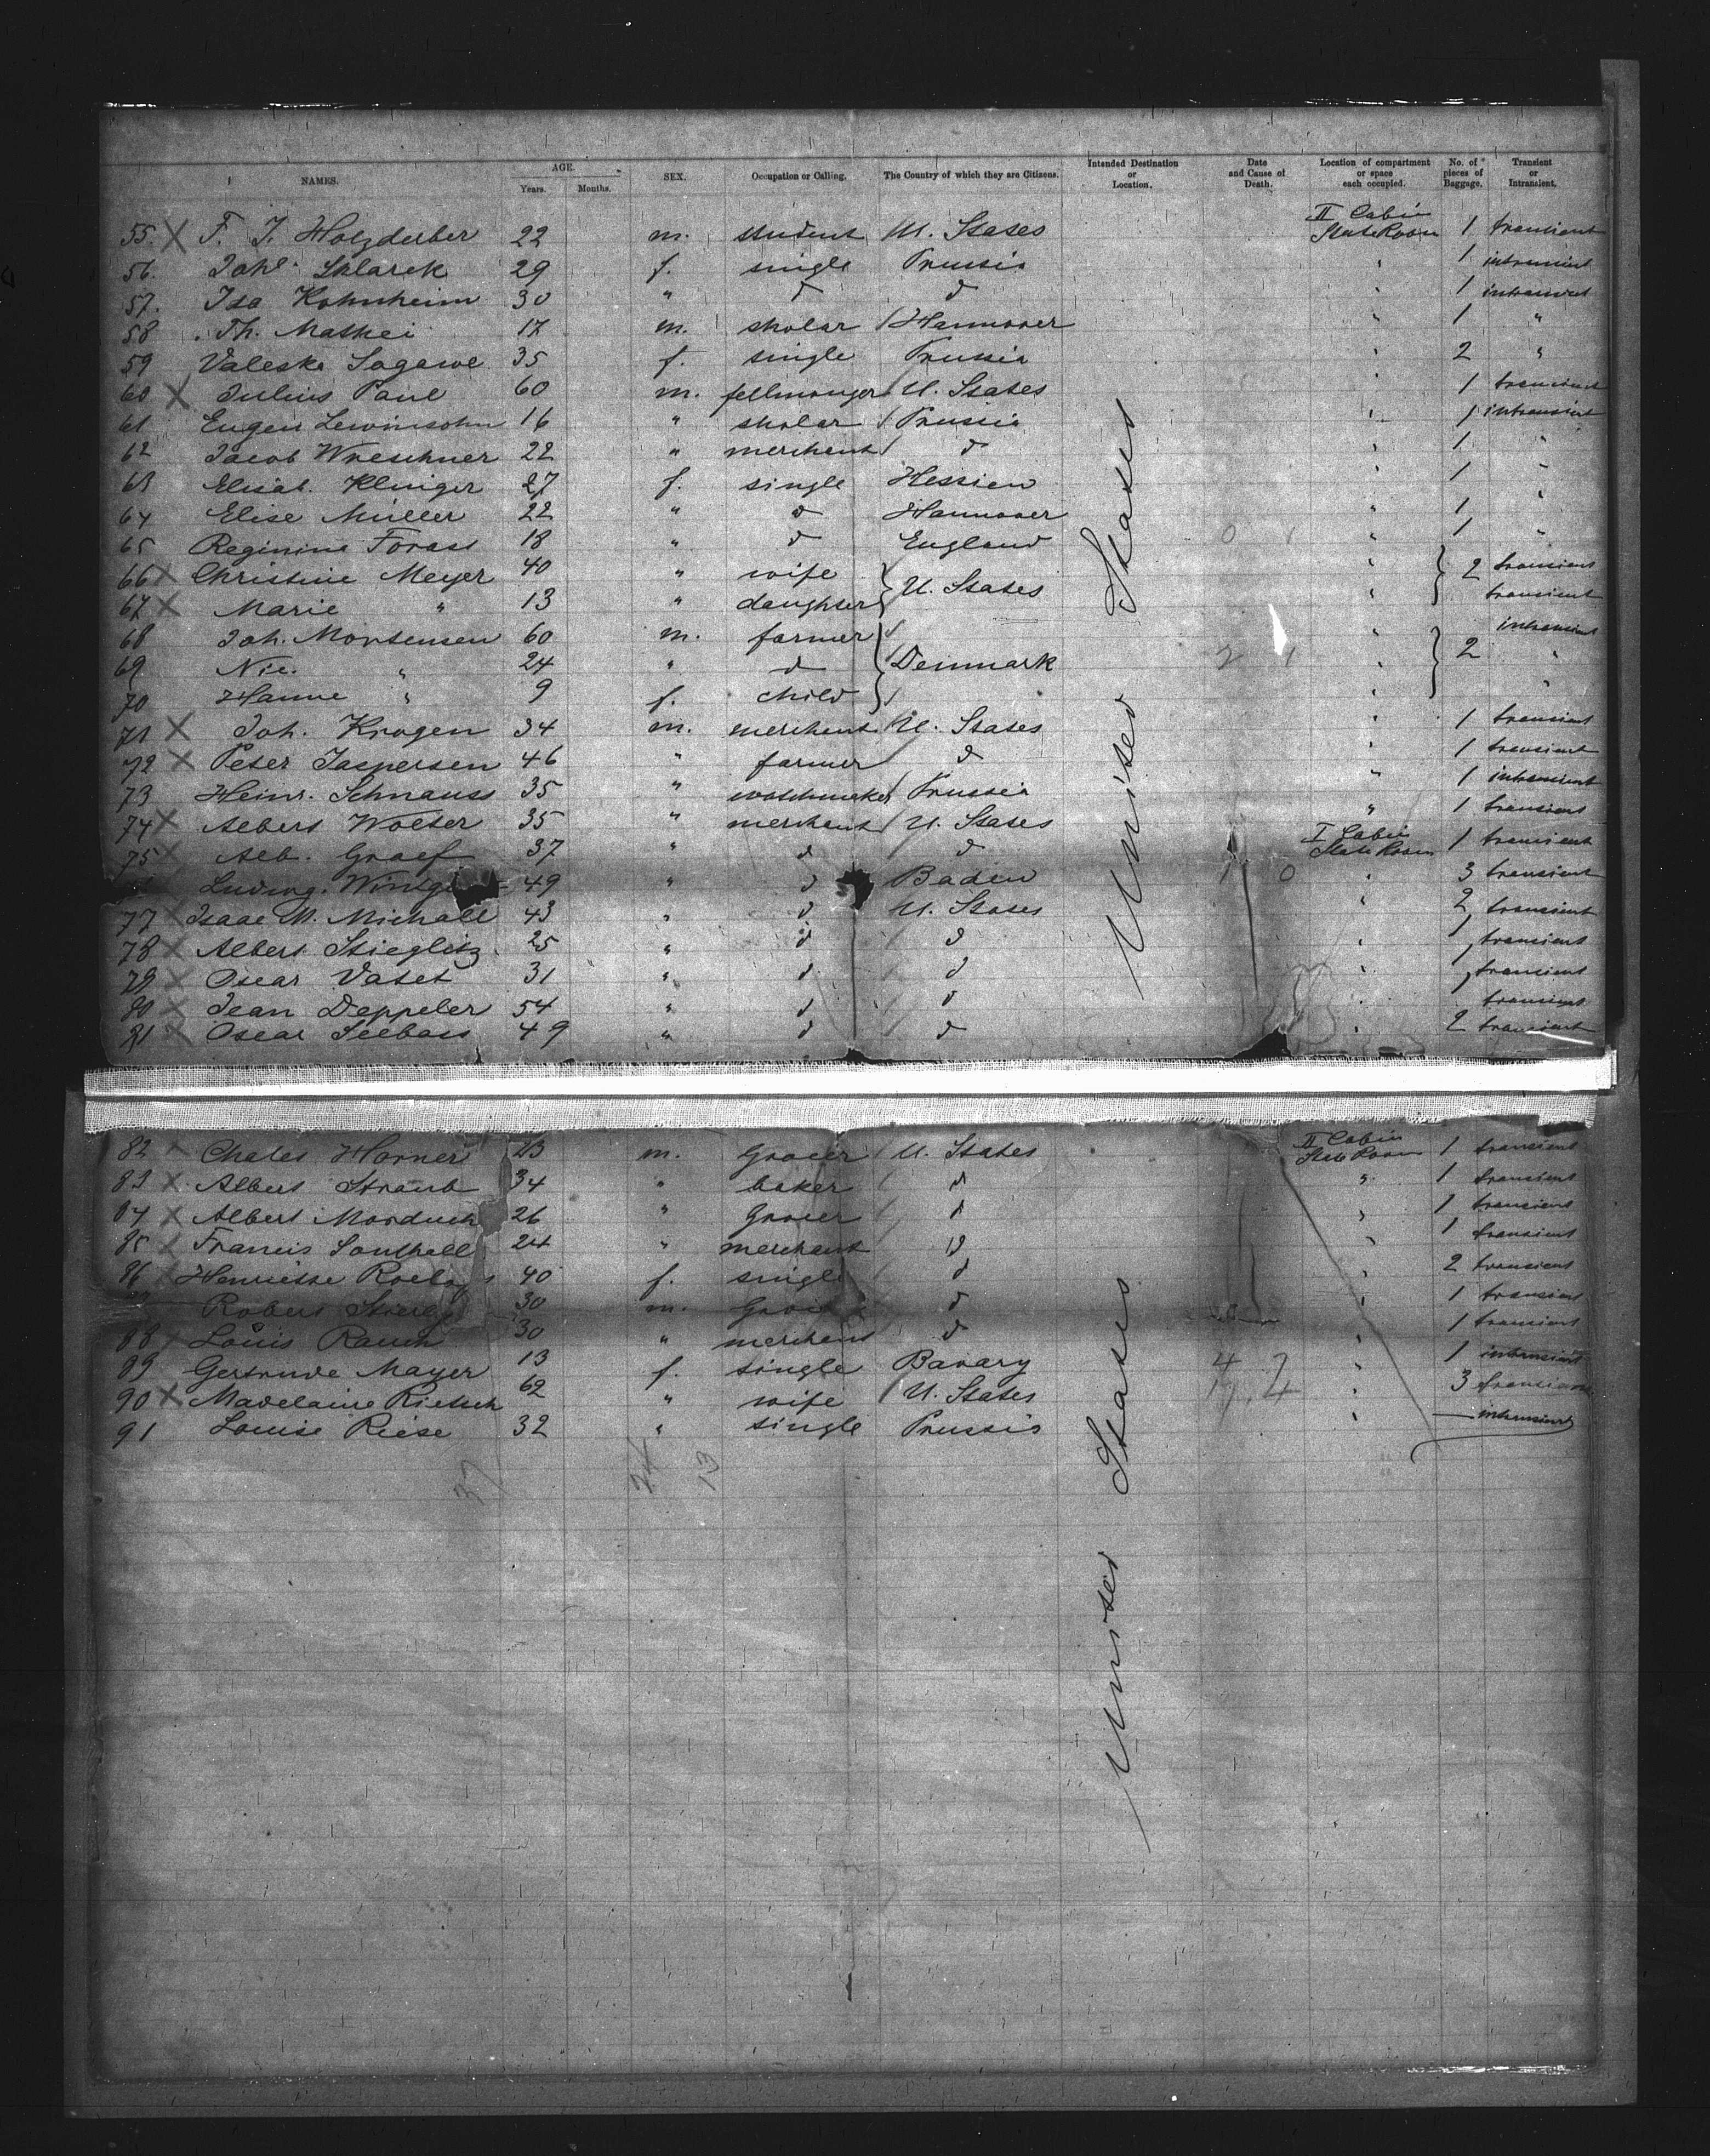 NAMES. AGE. Years. Months. SEX. Occupation or Calling. The Country of which they are Citizens. Intended Destination or Location. Date and Cause of Death. Location of compartment or space each occupied. No. of pieces of Baggage. Transient or Intransient.
55. X F. J. Holzderber 22 m. student U. States II Cabin State Room 1 transient
56. Joh. Sklarek 29 f. single Prussia " 1 intransient
57. Isa Kohnheim 30 " d d " 1 intransient
58 Th. Mathei 17 m. skolar Hannover " 1 "
59 Valeska Sagawe 35 f. single Prussia " 2 "
60 X Julius Paul 60 m. fellmonger U. States 1 transient
61 Eugen Lewinsohn 16 " skolar Prussia " 1 intransient
62 Jacob Wreschner 22 " merchent d " 1 "
63 Elisab. Klinger 27 f. single Hessien " 1 "
64 Elise Müller 22 " d Hannover " 1 "
65 Reginine Forass 18 " d England " 1 "
66 X Christine Meyer 40 " wife U. States " 2 transient
67 X Marie " 13 " daughter " transient
68 Joh. Mortensen 60 m. farmer " intransient
69 Nic. " 24 " d Denmark " 2 "
70 Hanne " 9 f. child " "
71 X Joh. Krogen 34 m. merchent U. States " 1 transient
72 X Peter Jaspersen 46 " farmer d " 1 transient
73 Heinr. Schnauss 35 " watchmeker Prussia " 1 intransient
74 X Albert Wolter 35 " merchent U. States " 1 transient
75 X Alb. Graef 37 " d d I Cabin State Room 1 transient
Ludwig. 49 " d Baden " 3 transient
77 X Isaac M. Michall 43 " d U. States " 2 transient
78 X Albert Stieglitz 25 " d d " 1 transient
79 X Oscar Vatet 31 " d d " 1 transient
80 X Jean Deppeler 54 " d d " transient
81 X Oscar Seebass 49 " d d " 2 transient
United States
82 X Chales Horner 23 m. Grocer U. States II Cabin State Room 1 transient
83 X Albert Straub 34 " baker d " 1 transient
84 X Albert Morduch 26 " Grocer d " 1 transient
85 X Francis Southall 24 " merchant d " 1 transient
86 X Henriette 40 f. single d " 2 transient
Robert 30 m. d " 1 transient
88 X Louis Rauch 30 " merchent d " 1 transient
89 Gertrude Mayer 13 f. single Bavary " 1 intransient
90 X Madelaine Rietsch 62 " wife U. States " 3 transient
91 Louise Riese 32 " single Prussia " — intransient
37 24 13
United States